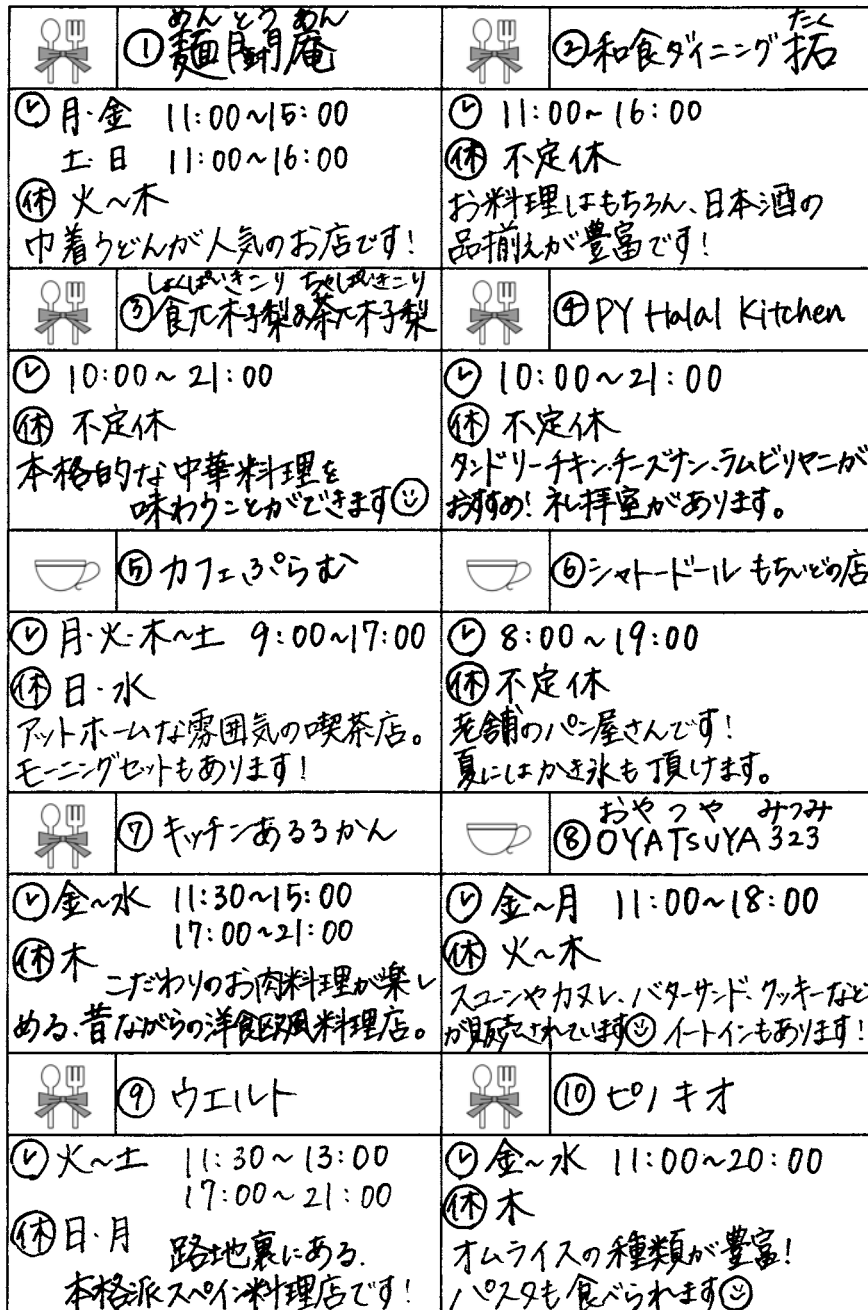 めんとうあん
①麺闘庵
月・金 11:00~15:00
土・日 11:00~16:00
休 火~木
巾着うどんが人気のお店です!
たく
②和食ダイニング 拓
11:00~16:00
休 不定休
お料理はもちろん、日本酒の
品揃えが豊富です!
しょくぱいきこり ちゃぱいきこり
③食π木子梨&茶π木子梨
10:00~21:00
休 不定休
本格的な中華料理を
味わうことができます
④PY Halal Kitchen
10:00~21:00
休 不定休
タンドリーチキン・チーズナン・ラムビリヤニが
おすすめ! 礼拝室があります。
⑤カフェぷらむ
月・火・木~土 9:00~17:00
休 日・水
アットホームな雰囲気の喫茶店。
モーニングセットもあります!
⑥シャトードール もちいどの店
8:00~19:00
休 不定休
老舗のパン屋さんです!
夏にはかき氷も頂けます。
⑦キッチンあるるかん
金~水 11:30~15:00
17:00~21:00
休 木
こだわりのお肉料理が楽し
める、昔ながらの洋食欧風料理店。
おやつや みつみ
⑧OYATSUYA 323
金~月 11:00~18:00
休 火~木
スコーンやカヌレ、バターサンド、クッキーなど
が販売されています イートインもあります!
⑨ウエルト
火~土 11:30~13:00
17:00~21:00
休 日・月
路地裏にある、
本格派スペイン料理店です!
⑩ピノキオ
金~水 11:00~20:00
休 木
オムライスの種類が豊富!
パスタも食べられます